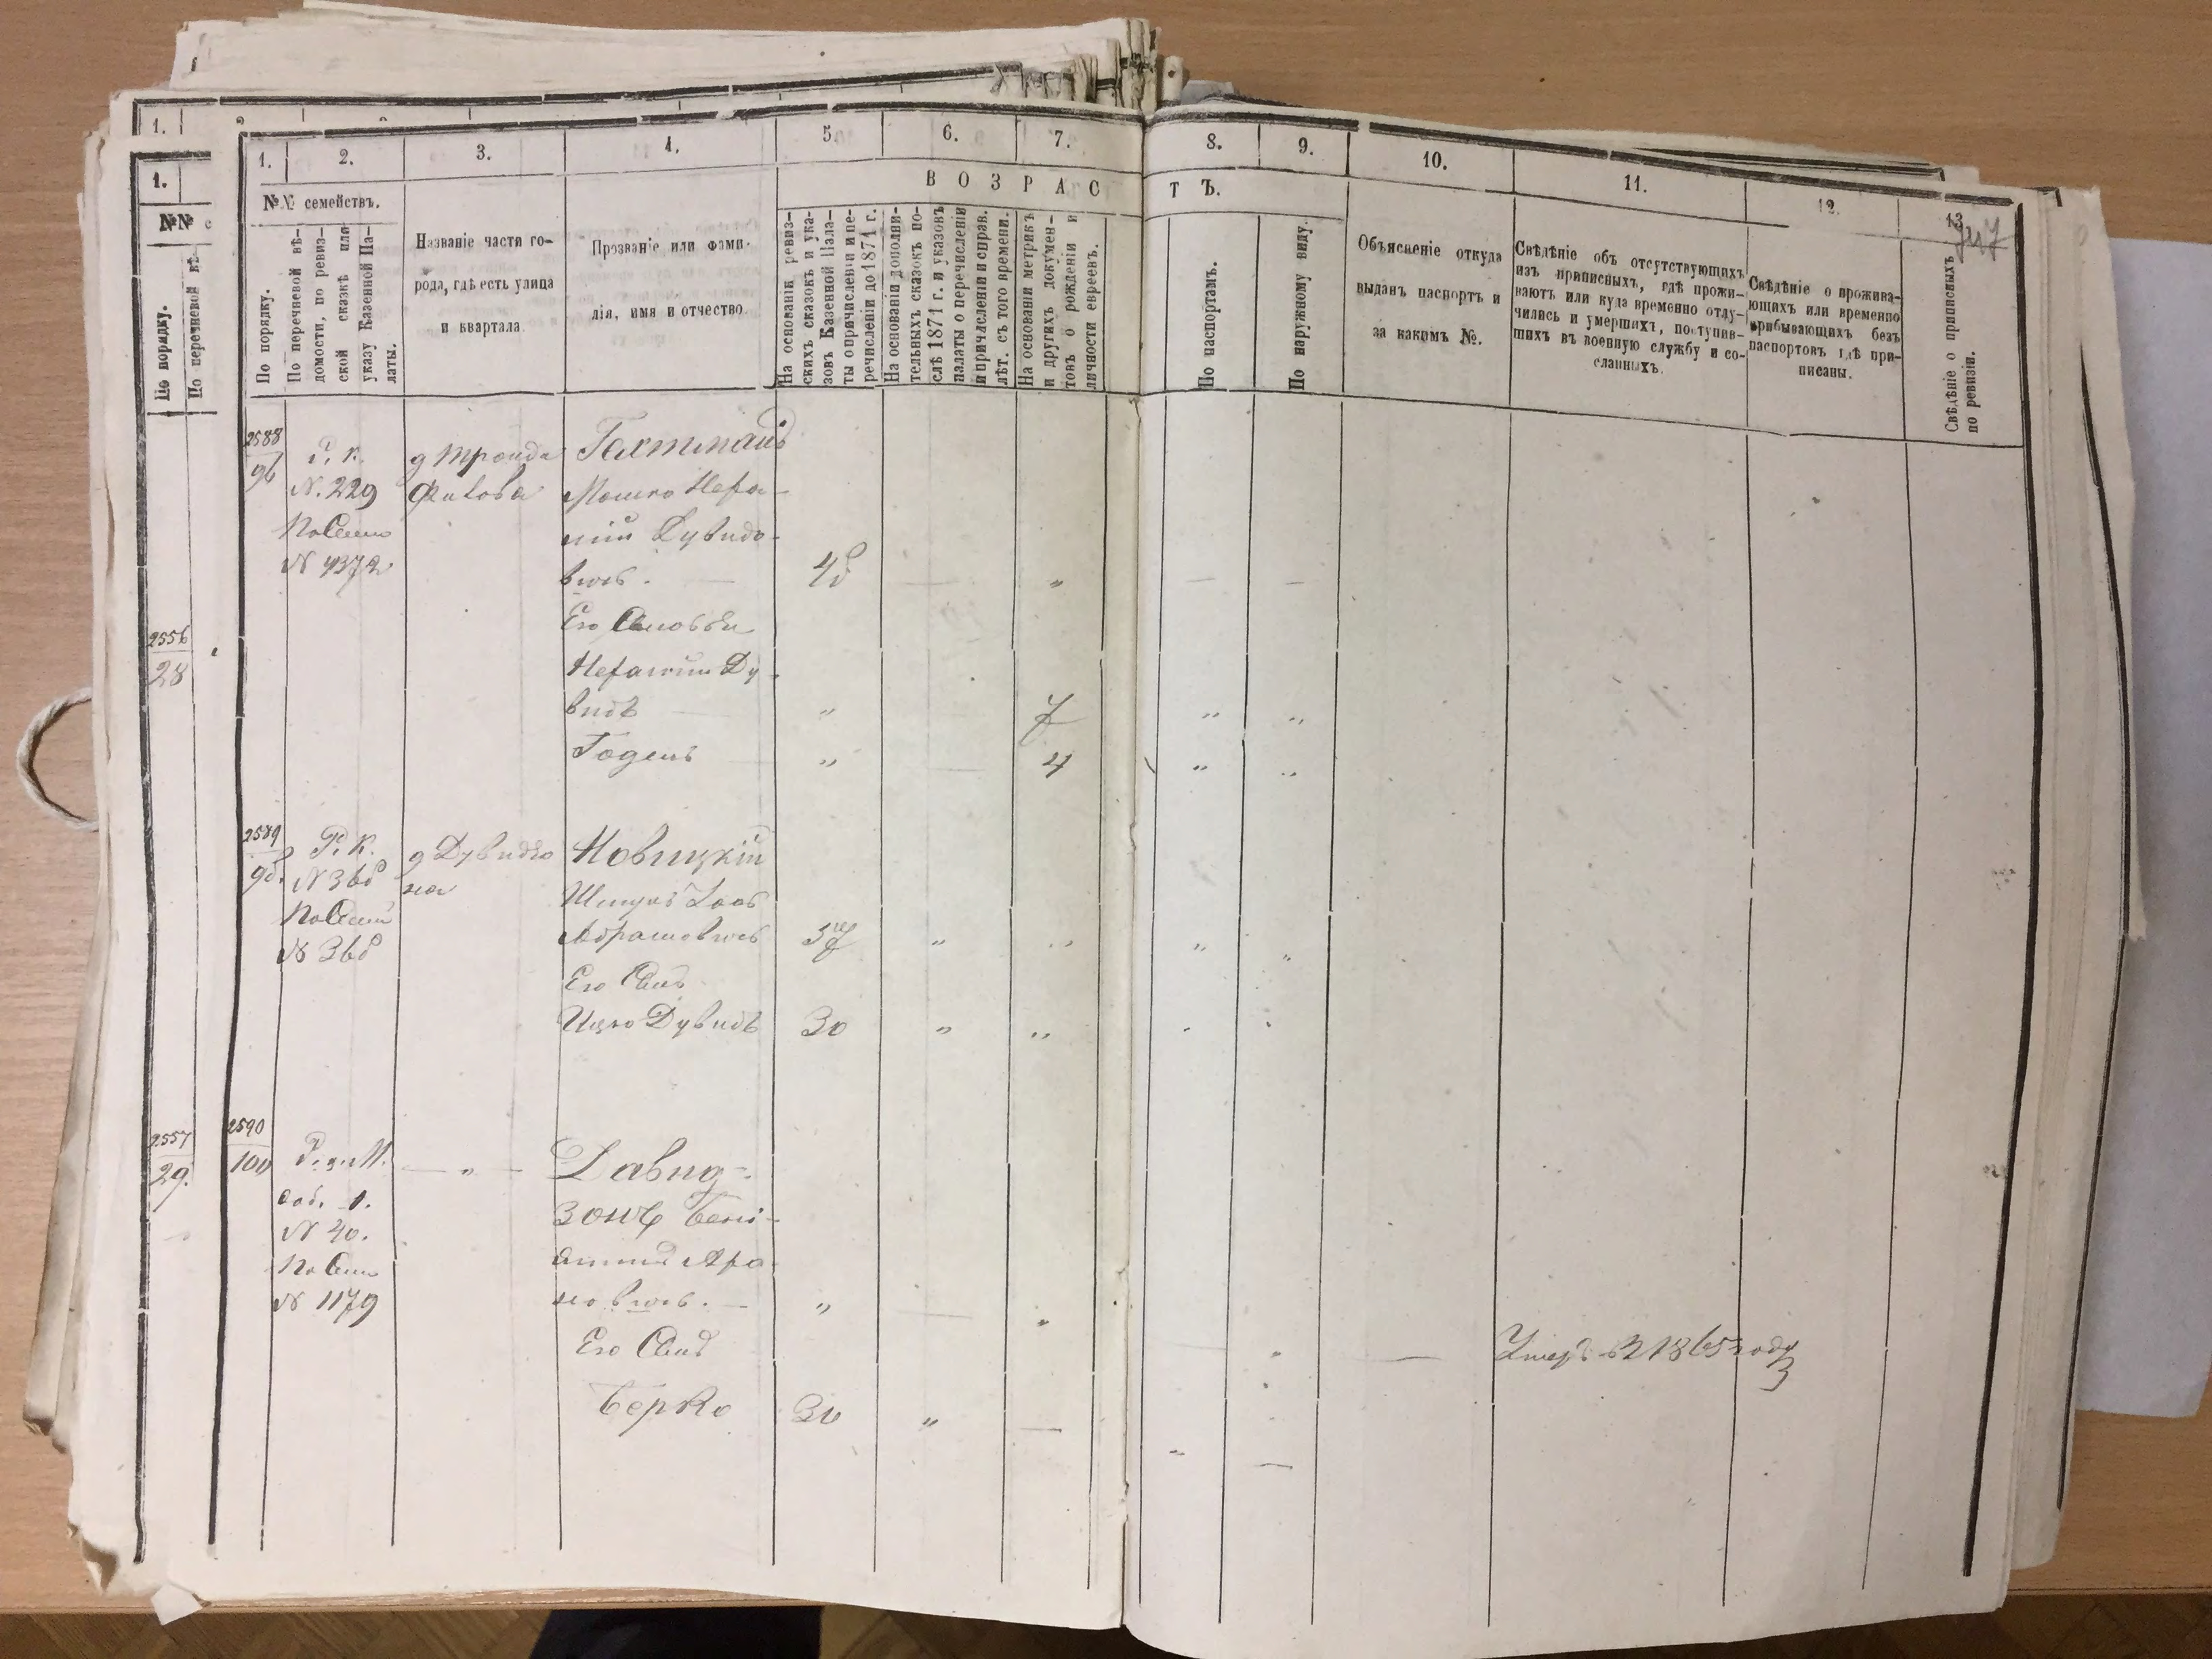 1.
1.
№№ с
По порядку.
По перечневой вѣ-
2556
28
2557
29.
1.
2.
3.
4.
5.
6.
7.
8.
9.
10.
11.
12.
13.
№№ семействъ.
По порядку.
По перечневой вѣ-
домости, по ревиз-
ской сказкѣ или
указу Казенной Па-
латы.
Названіе части го-
рода, гдѣ есть улица
и квартала
Прозваніе или фами-
лія, имя и отчество.
ВОЗРАСТЪ.
На основаніи ревиз-
скихъ сказокъ и ука-
зовъ Казенной Пала-
ты о причисленіи и пе-
речисленіи до 1871 г.
На основаніи дополни-
тельныхъ сказокъ по-
слѣ 1871 г. и указовъ
палаты о перечисленіи
и причисленіи и справ.
лѣт. съ того времени.
На основаніи метрикъ
и другихъ докумен-
товъ о рожденіи и
личности евреевъ.
По паспортамъ.
По наружному виду.
Объясненіе откуда
выданъ паспортъ и
за какимъ №.
Свѣдѣніе объ отсутствующихъ
изъ приписныхъ, гдѣ прожи-
ваютъ или куда временно отлу-
чились и умершихъ, поступив-
шихъ въ военную службу и со-
сланныхъ.
Свѣдѣніе о прожива-
ющихъ или временно
прибывающихъ безъ
паспортовъ гдѣ при-
писаны.
Свѣдѣніе о приписныхъ
по ревизіи.
2588
Р. К.
N. 229
N 4372
Мошко Нефа-
ній Дувидо-
вичъ.
Его Сыновья
Нефаніи Ду-
видъ
7
Годель
4
2589
Р. К.
N 368
N 368
Новицкій
Абрамовичъ
37
Его Сынъ
Ицко Дувидъ
30
2590
100
N 40.
N 1179
Давид-
зонъ Бені-
аминъ Аро-
новичъ.
Умеръ въ 1865 году
Его Сынъ
Берко
30